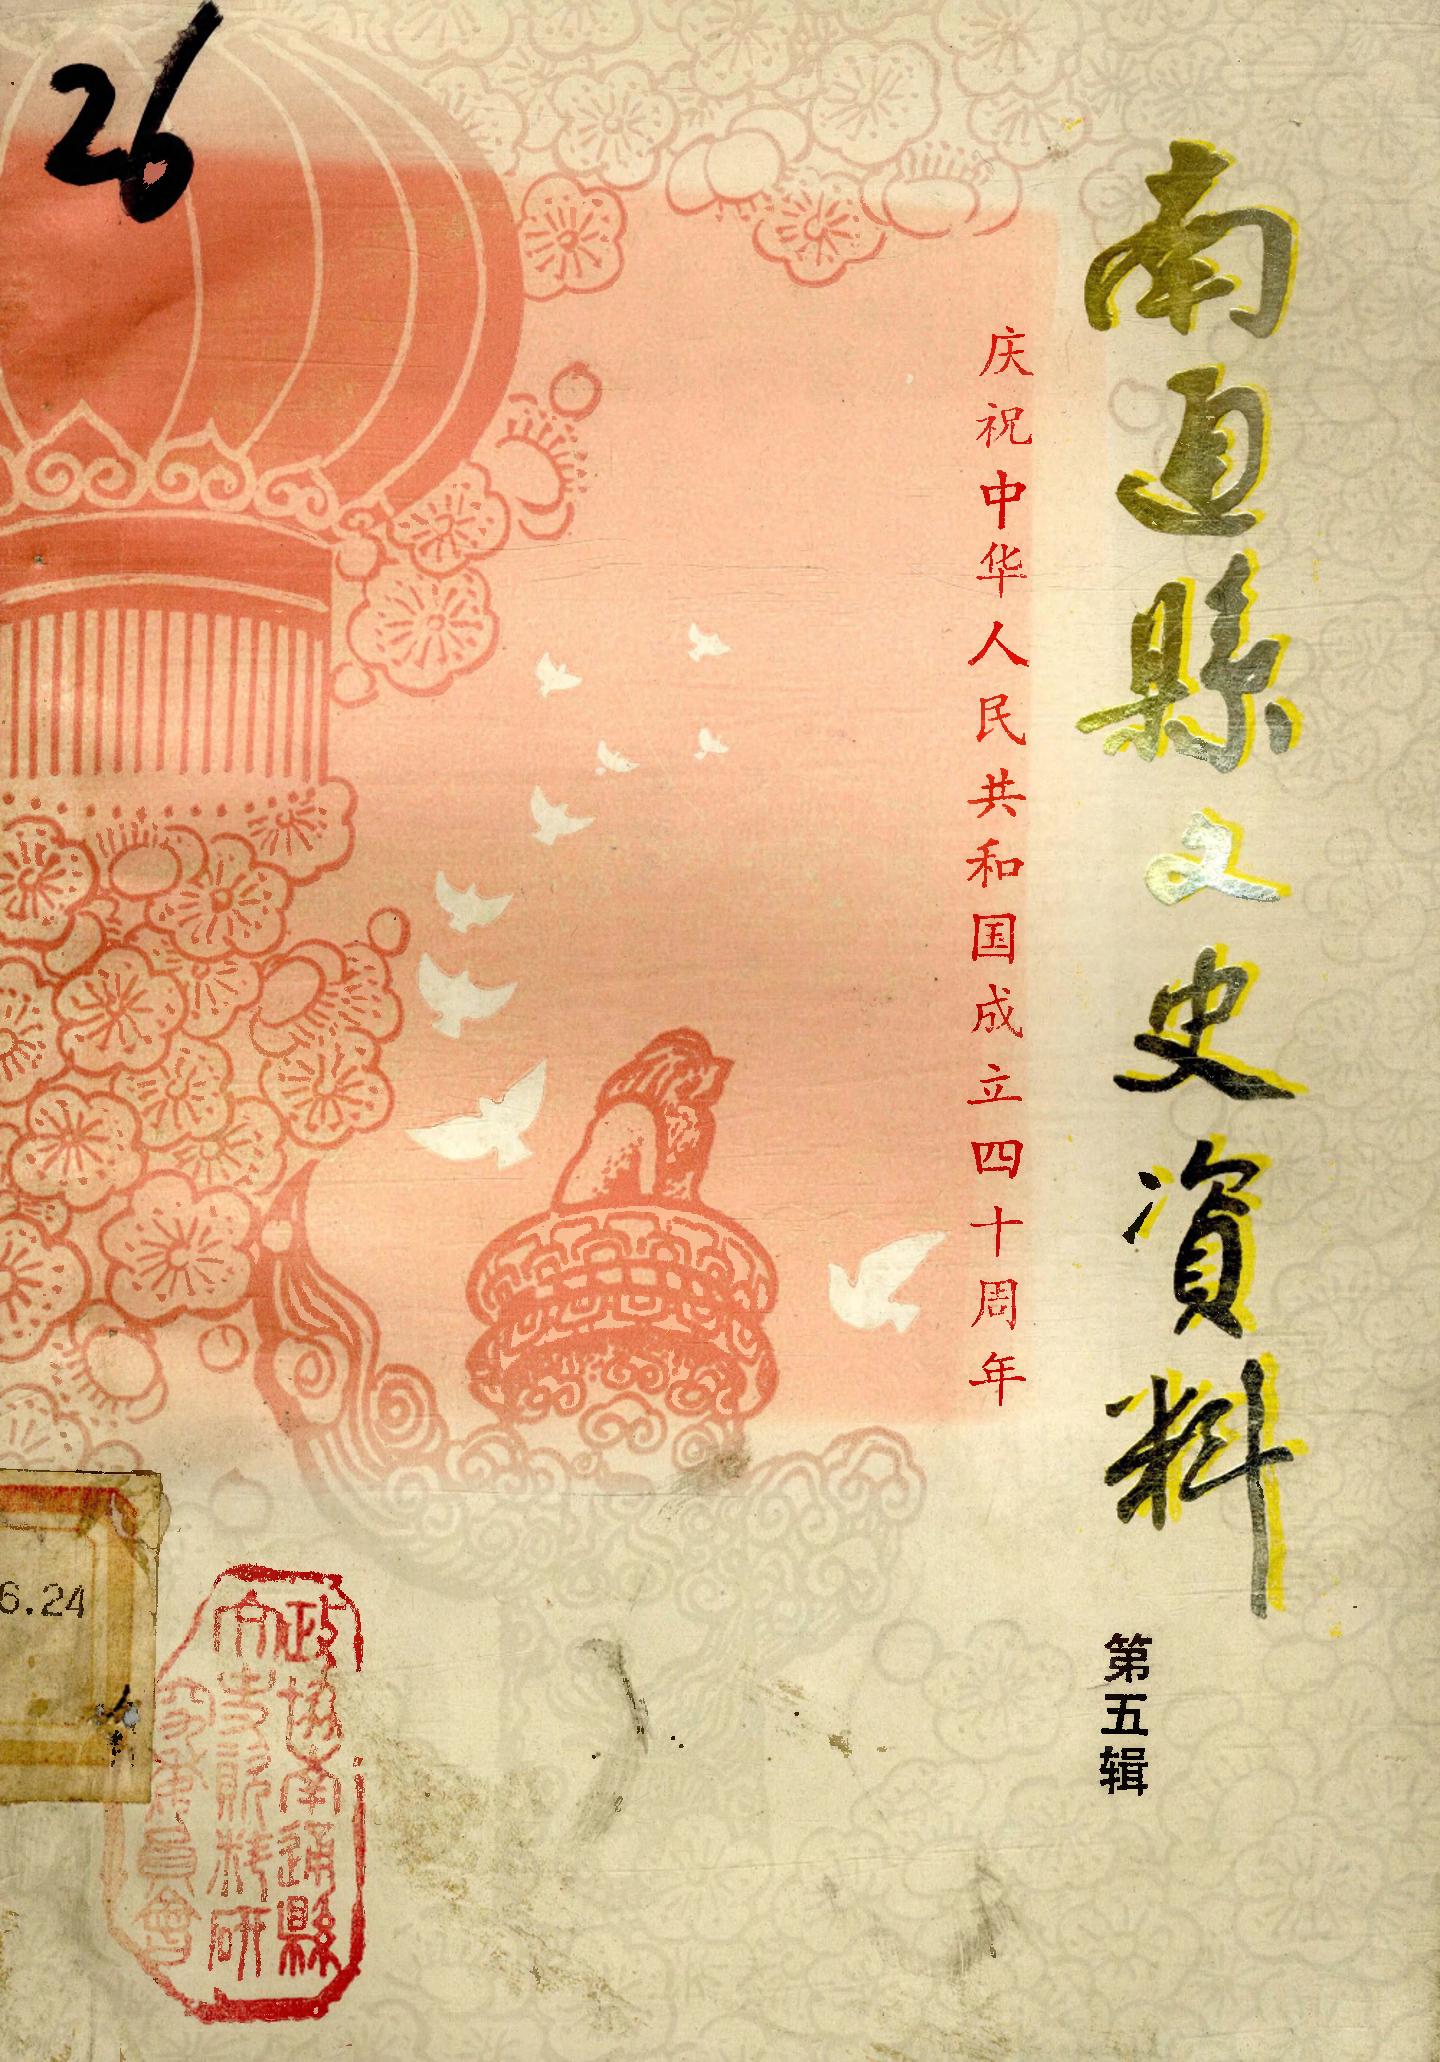 26
南通縣文史資料
庆祝中华人民共和国成立四十周年
第五辑
6.24
政協南通縣
文史資料研
究委員會